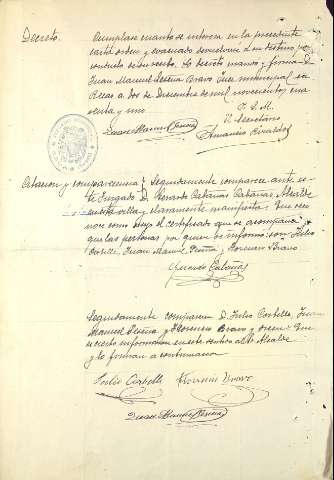 Decreto. Cumplase cuanto se interesa en la precedente
carta orden y evacuado devuelvase a su destino por
conducto de su recibo. Lo decretó mandó y firma D.
Juan Manuel Pereña Bravo Juez municipal en
Rozas a dos de Diciembre de mil novecientos cua
renta y uno
P. S. M.
El Secretario
Juan Manuel Pereña
Citacion y comparecencia Seguidamente comparece ante es
te Juzgado D. Gerardo Cabañas Cabañas Alcalde
en esta villa y claramente manifiesta: Que reco
noce como suyo el certificado que se acompaña y
que las personas por quien se informó son Julio
Costello, Juan Manuel Pereña, Florencio Bravo
Gerardo Cabañas
Seguidamente comparecen D. Julio Costello, Juan
Manuel Pereña y Florencio Bravo y dicen: Que
es cierto informaron en este sentido al Sr Alcalde
y lo firman a continuacion
Julio Costello Florencio Bravo
Juan Manuel Pereña